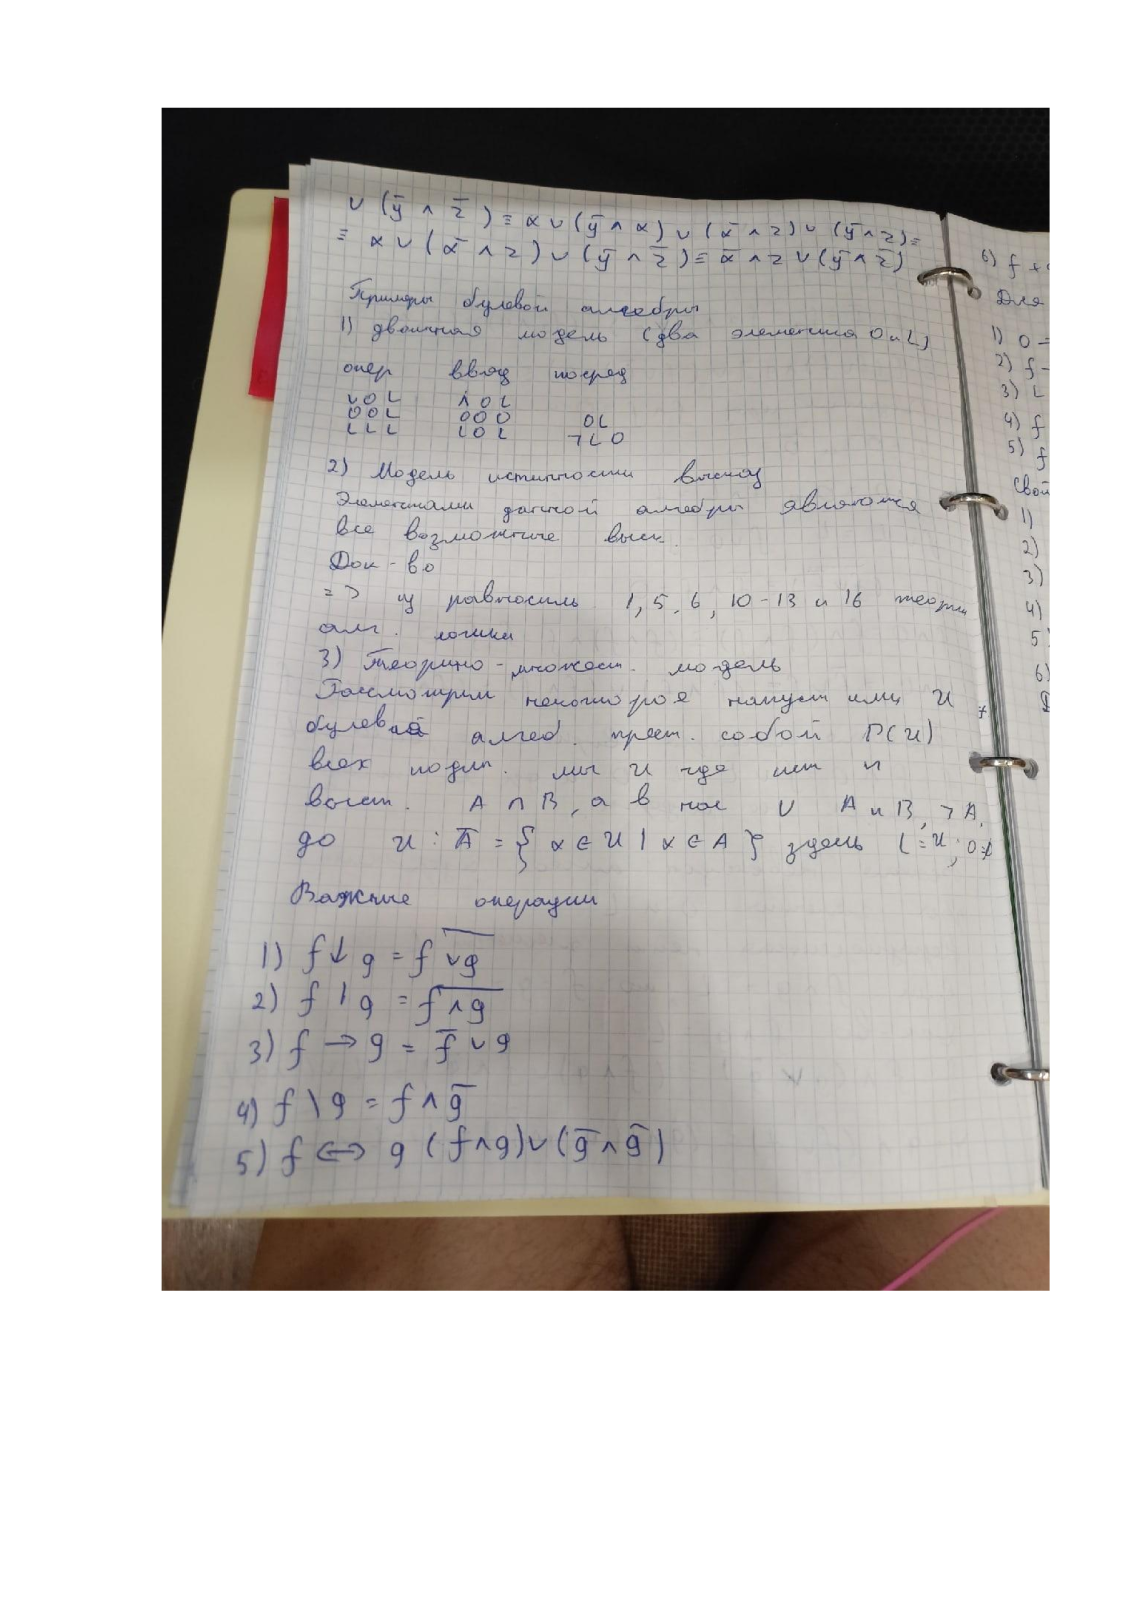 ∨ (ȳ ∧ z̄) ≡ x ∨ (ȳ ∧ x) ∨ (x̄ ∧ z) ∨ (ȳ ∧ z) ≡
≡ x ∨ (x̄ ∧ z) ∨ (ȳ ∧ z̄) ≡ x̄ ∧ z ∨ (ȳ ∧ z̄)
Примеры булевой алгебры
1) двоичная модель (два элемента 0 и L)
опер ввод посред
∨ 0 L ∧ 0 L
0 0 L 0 0 0 0 L
L L L L 0 L ¬ L 0
2) Модель истинности выск
Элементами данной алгебры являются
все возможные выск.
Док-во
=> из равносиль 1, 5, 6, 10-13 и 16 теории
алг. логики
3) Теорино-множест. модель
Рассмотрим некоторое U
булевая алгеб. прест. собой P(U)
всех подмн. мн U где
A ∩ B, а в ∪ A и B, ¬A.
до U : Ā = { x ∈ U | x ∈ A } здесь L = U; 0
Важные операции
1) f ↓ g = f ∨ g
2) f | g = f ∧ g
3) f → g = f̄ ∨ g
4) f \ g = f ∧ ḡ
5) f ⟷ g (f ∧ g) ∨ (ḡ ∧ ḡ)
6) f +
Для
1) 0 -
2) f -
3) L
4) f
5) f
Свой
1)
2)
3)
4)
5)
6)